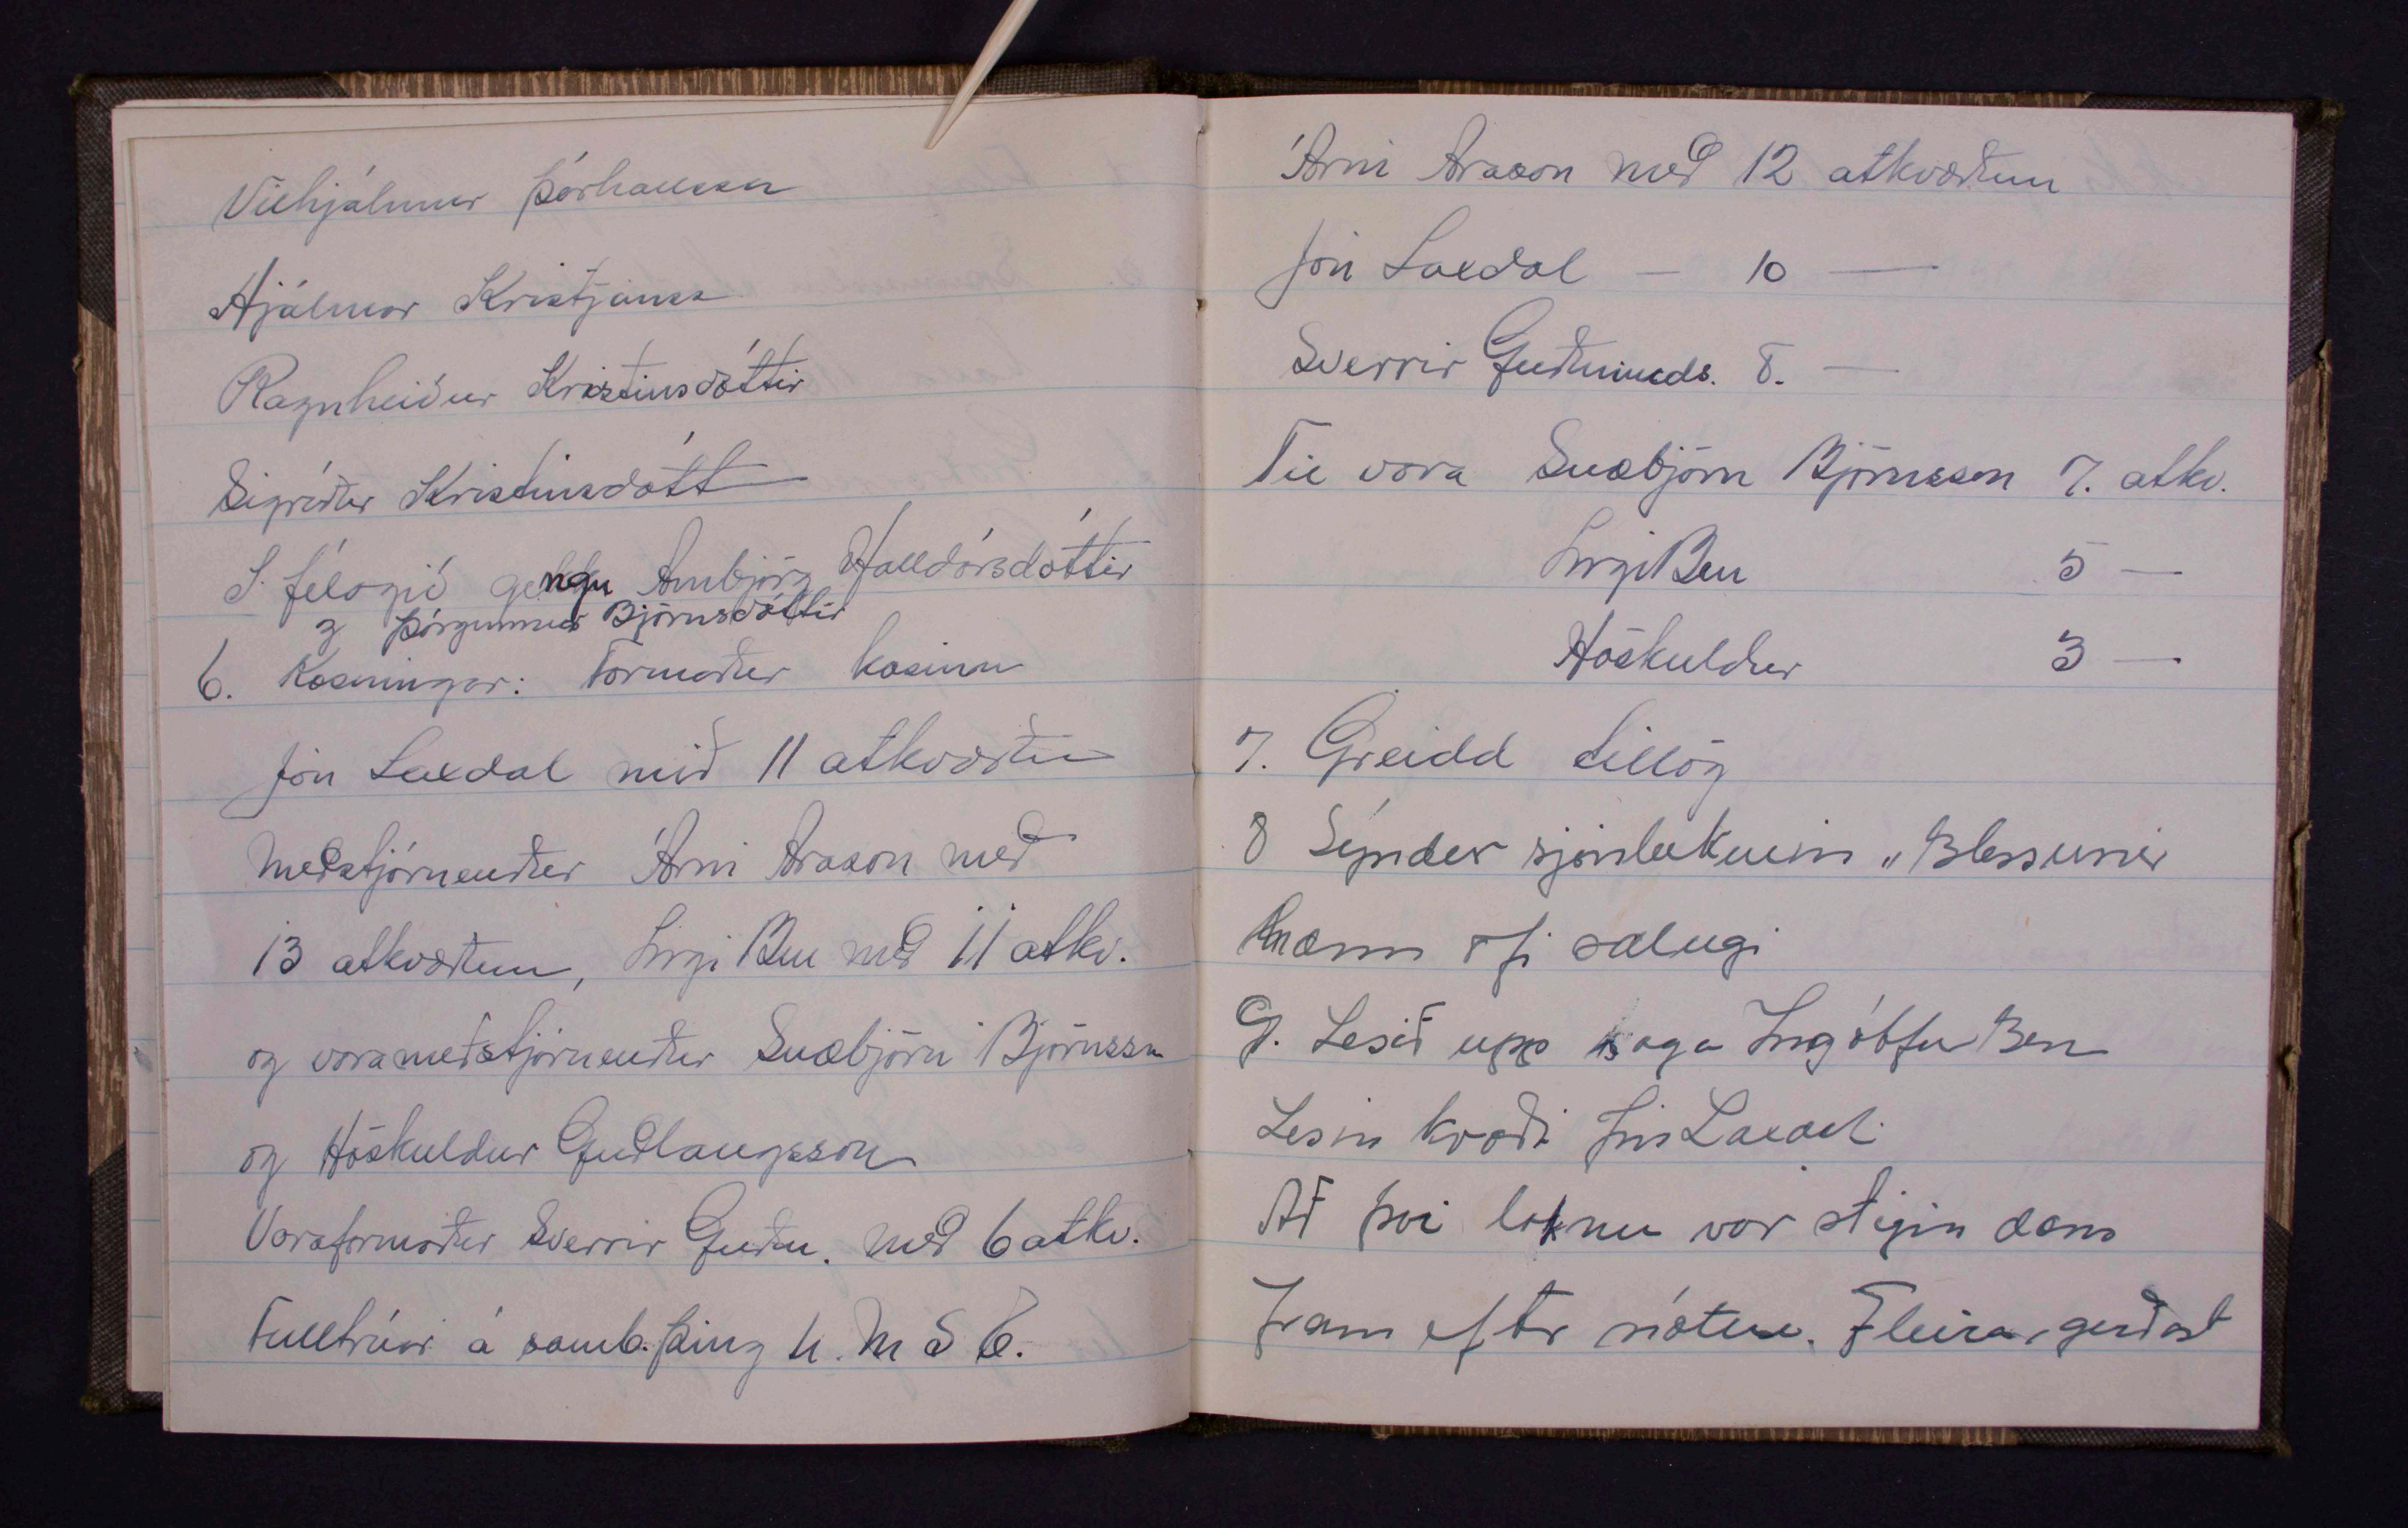 Vilhjálmur Þórhallsson
Hjálmar Kristjánss
Ragnheiður Kristinsdóttir
Sigríður Kristinsdótt
Í félagið gengu Arnbjörg Halldórsdóttir
og Þórgunnur Björnsdóttir
6. Kosningar: Formaður kosinn
Jón Laxdal með 11 atkvæðum
Meðstjórnendur Árni Arason með
13 atkvæðum, Ingi Ben með 11 atkv.
og varameðstjórnendur Snæbjörn Björnssn
og Höskuldur Guðlaugsson
Varaformaður Sverrir Guðm. með 6 atkv.
Fulltrúar á samb.þing U.M.S.E.
Árni Arason með 12 atkvæðum
Jón Laxdal — 10 —
Sverrir Guðmunds. 8. —
Til vara Snæbjörn Björnsson 7. atkv.
Ingi Ben 5 —
Höskuldur 3 —
7. Greidd tillög
8 Sýndur sjónleikurinn „Blessunin
hann afi sálugi
9. Lesið upp saga Ingólfur Ben
Lesin kvæði Jón Laxdal.
Að því loknu var stigin dans
fram eftir nóttu. Fleira gerðist